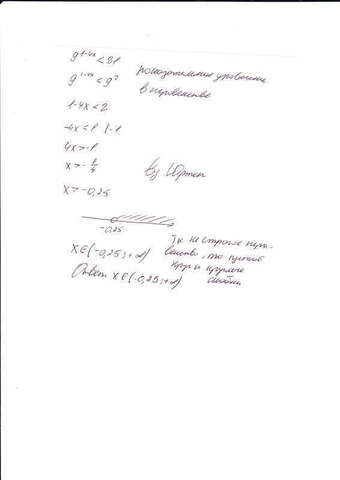 9^{1-4x} < 81
показательное уравнение
9^{1-4x} < 9^2
в неравенстве
1-4x < 2
-4x < 1 |-1
4x > -1
x > -1/4
by
x > -0,25
-0,25
Т.к не строгое нера-
x ∈ (-0,25; +∞)
венство, то пустой
круг и круглые
скобки
Ответ x ∈ (-0,25; +∞)